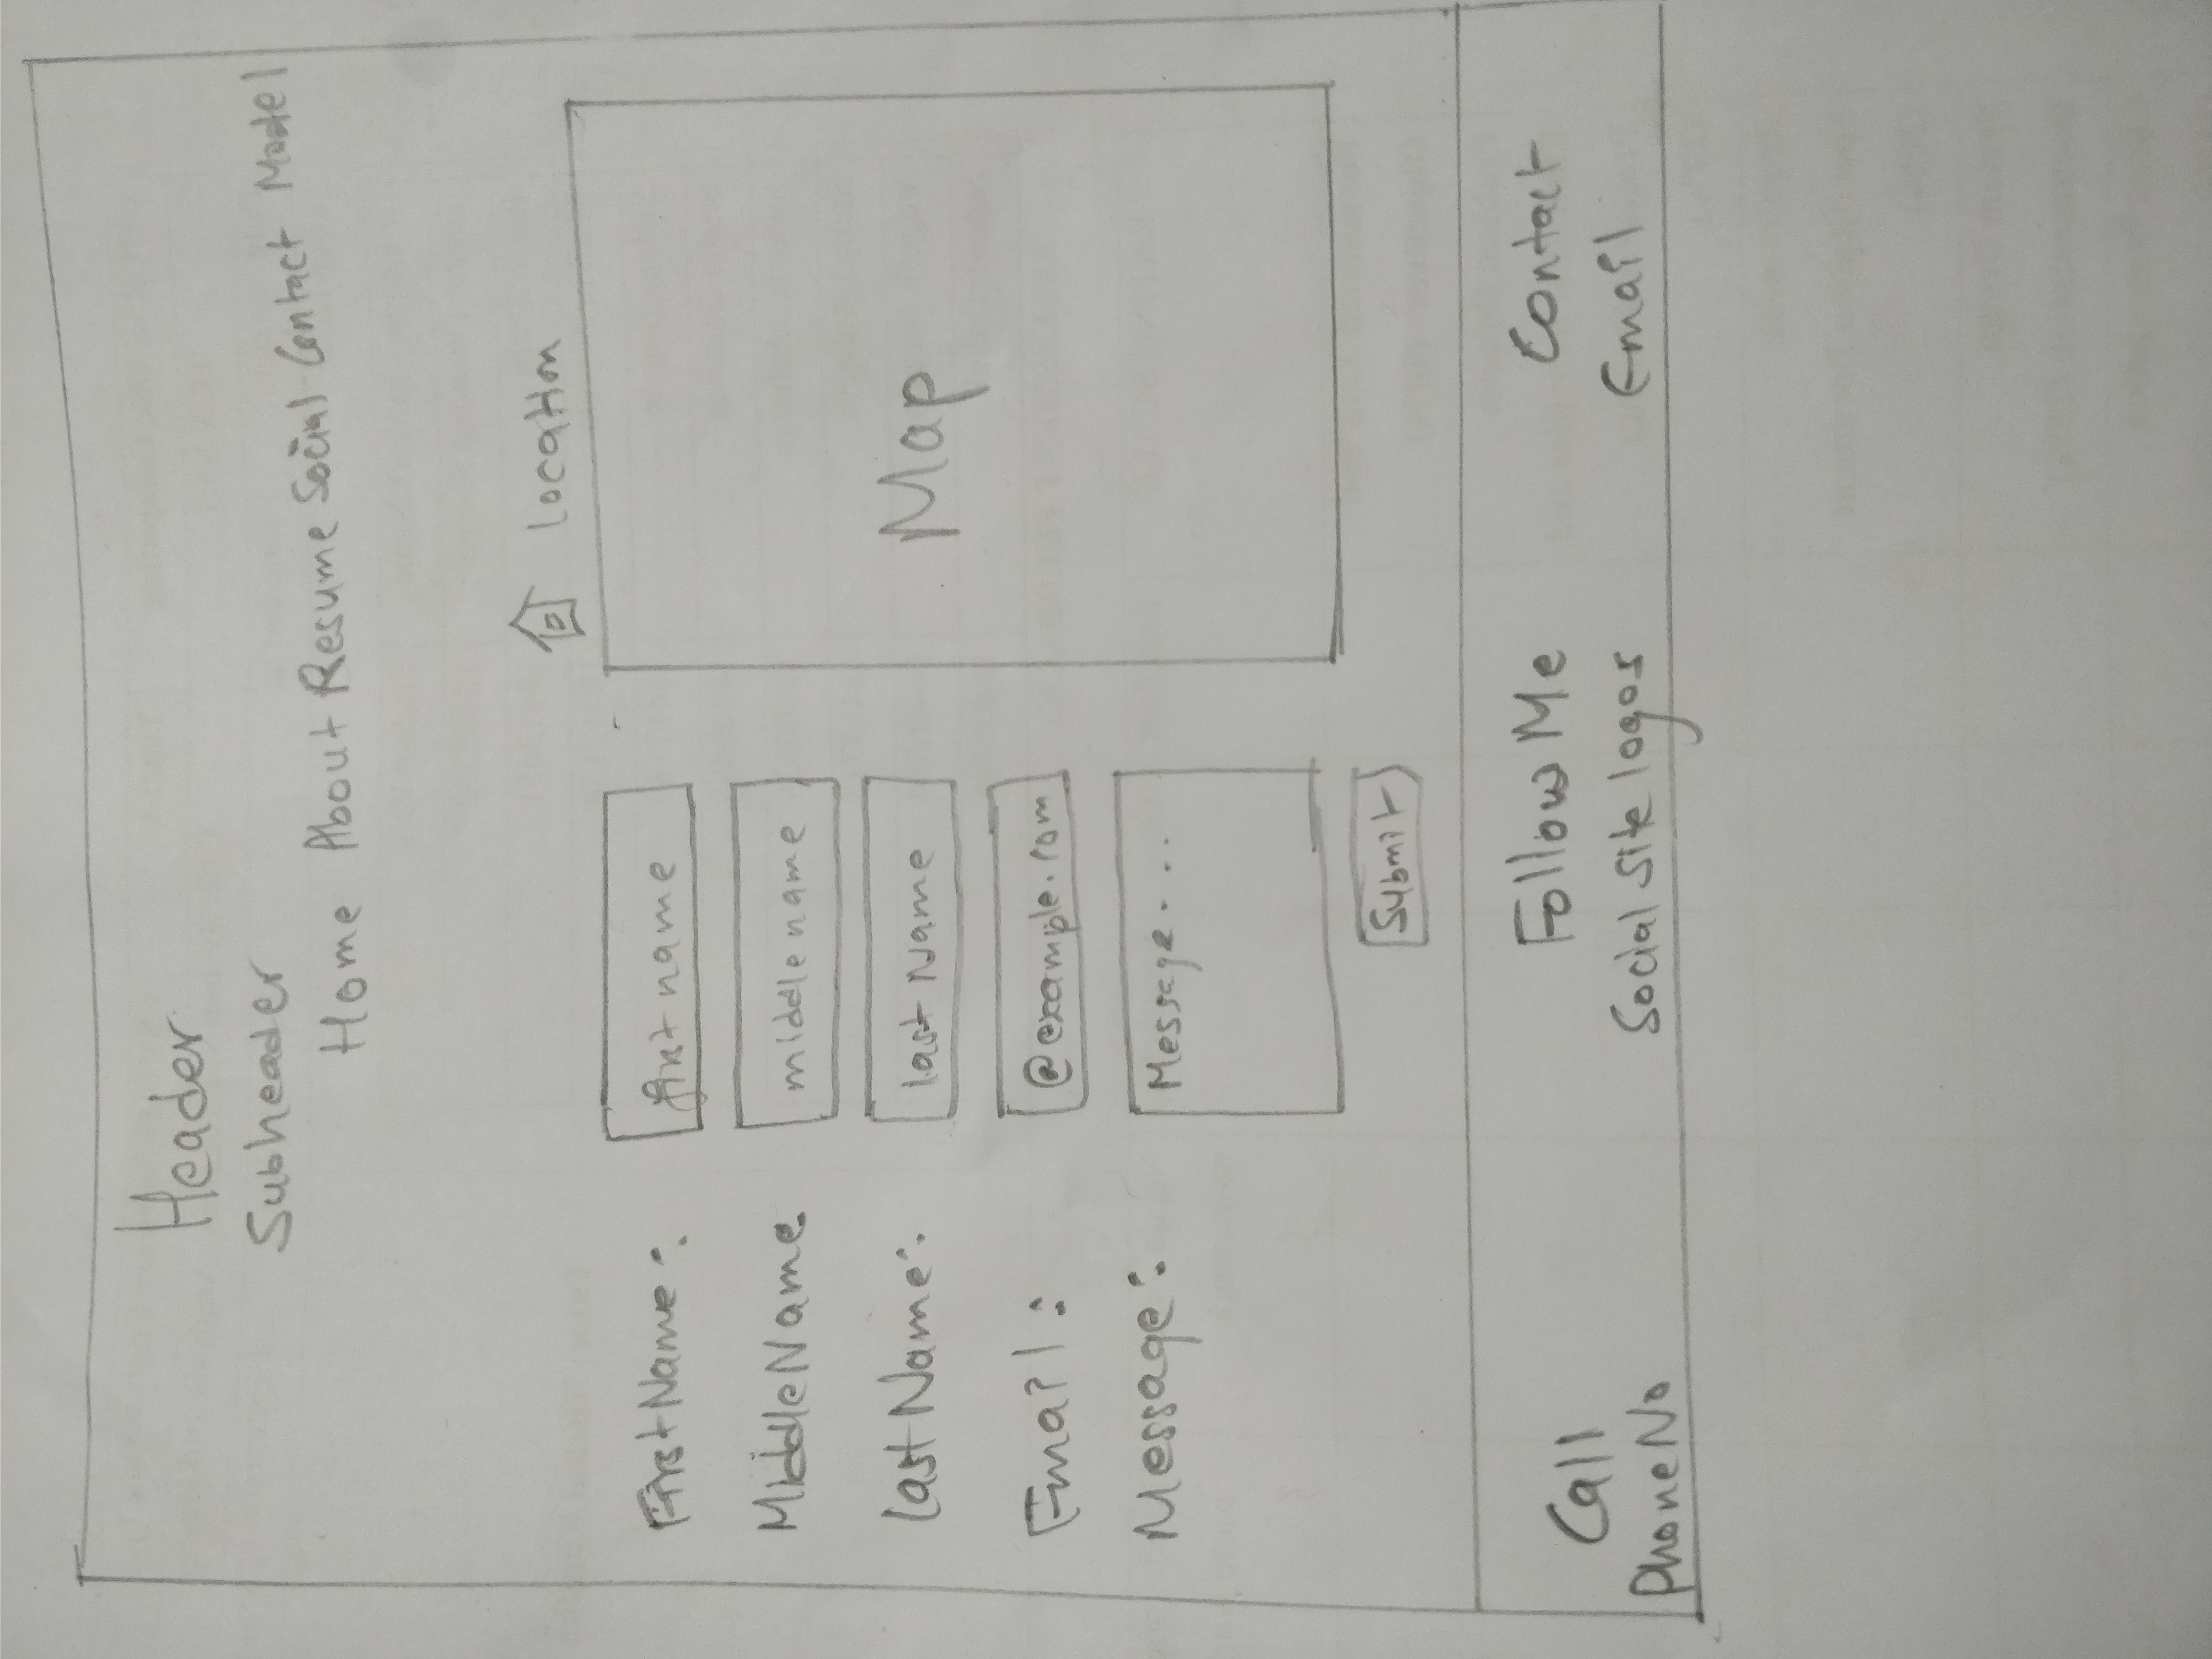 Header
Subheader
Home About Resume Social Contact Model
location
FirstName:
first name
MiddleName
middle name
LastName:
last Name
Email:
@example.com
Message:
Message....
Map
Submit
Call
PhoneNo
Follow Me
Social site logos
Contact
Email